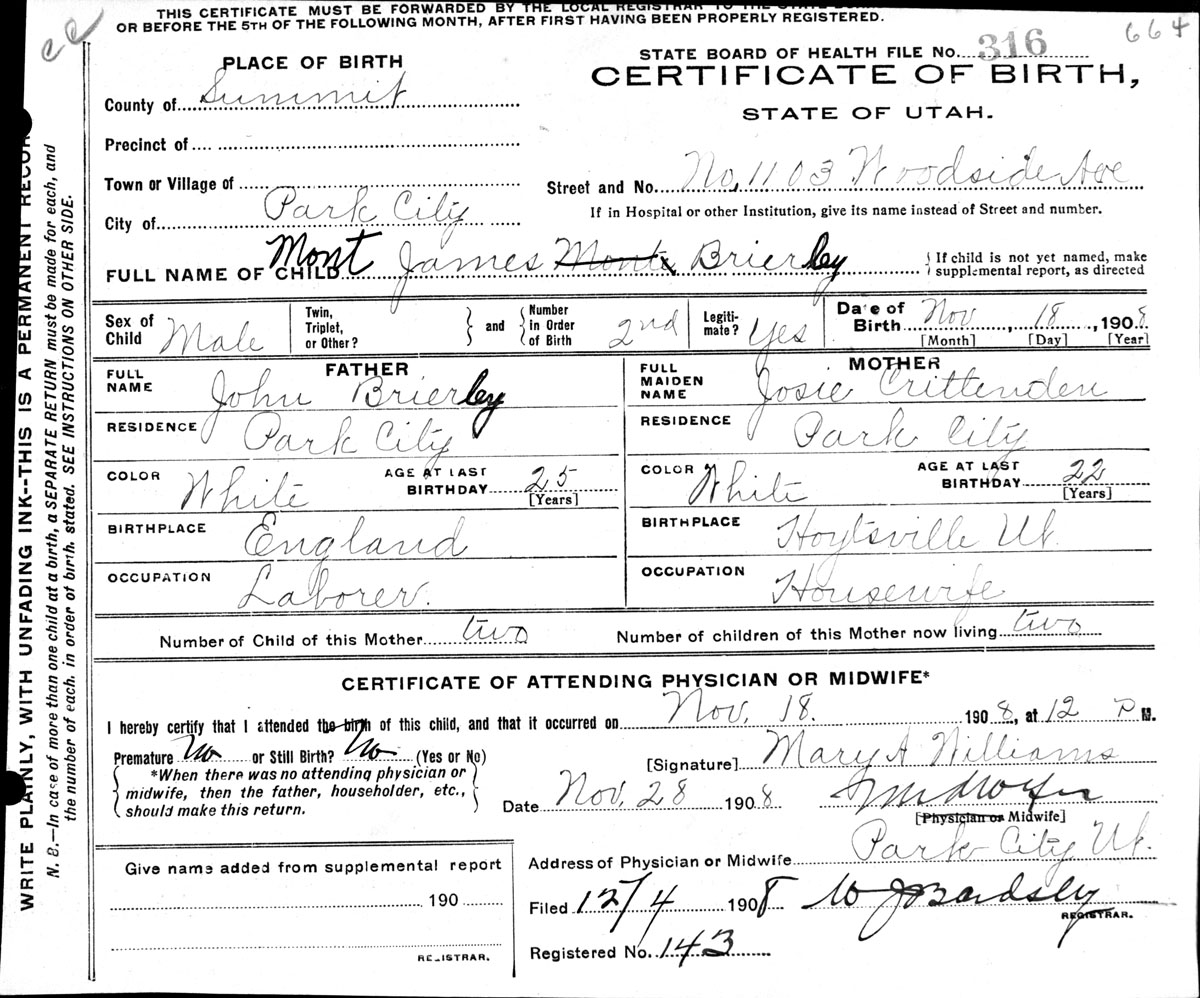 THIS CERTIFICATE MUST BE FORWARDED BY THE LOCAL REGISTRAR TO THE STATE
OR BEFORE THE 5TH OF THE FOLLOWING MONTH, AFTER FIRST HAVING BEEN PROPERLY REGISTERED.
664
STATE BOARD OF HEALTH FILE No. 316
CERTIFICATE OF BIRTH,
STATE OF UTAH.
PLACE OF BIRTH
County of Summit
Precinct of
Town or Village of
City of Park City
Street and No. No. 1103 Woodside Ave
If in Hospital or other Institution, give its name instead of Street and number.
FULL NAME OF CHILD Mont James Monte Brierley
If child is not yet named, make
supplemental report, as directed
Sex of Child Male
Twin, Triplet, or Other?
and Number in Order of Birth 2nd
Legiti-mate? Yes
Date of Birth Nov, 18, 1908
[Month] [Day] [Year]
FATHER
FULL NAME John Brierley
RESIDENCE Park City
COLOR White AGE AT LAST BIRTHDAY 25
[Years]
BIRTHPLACE England
OCCUPATION Laborer.
MOTHER
FULL MAIDEN NAME Josie Crittenden
RESIDENCE Park City
COLOR White AGE AT LAST BIRTHDAY 22
[Years]
BIRTHPLACE Hoytsville Ut.
OCCUPATION Housewife
Number of Child of this Mother two
Number of children of this Mother now living two
CERTIFICATE OF ATTENDING PHYSICIAN OR MIDWIFE*
I hereby certify that I attended the birth of this child, and that it occurred on Nov. 18. 1908, at 12 P M.
Premature No or Still Birth? No (Yes or No)
*When there was no attending physician or
midwife, then the father, householder, etc.,
should make this return.
[Signature] Mary A Williams
Date Nov. 28 1908 Midwife
[Physician or Midwife]
Address of Physician or Midwife Park City Ut.
Filed 12/4 1908 W J Bardsley
REGISTRAR.
Registered No. 143
Give name added from supplemental report
190
REGISTRAR.
WRITE PLAINLY, WITH UNFADING INK--THIS IS A PERMANENT RECOR
N. B.—In case of more than one child at a birth, a SEPARATE RETURN must be made for each, and
the number of each. in order of birth. stated. SEE INSTRUCTIONS ON OTHER SIDE.